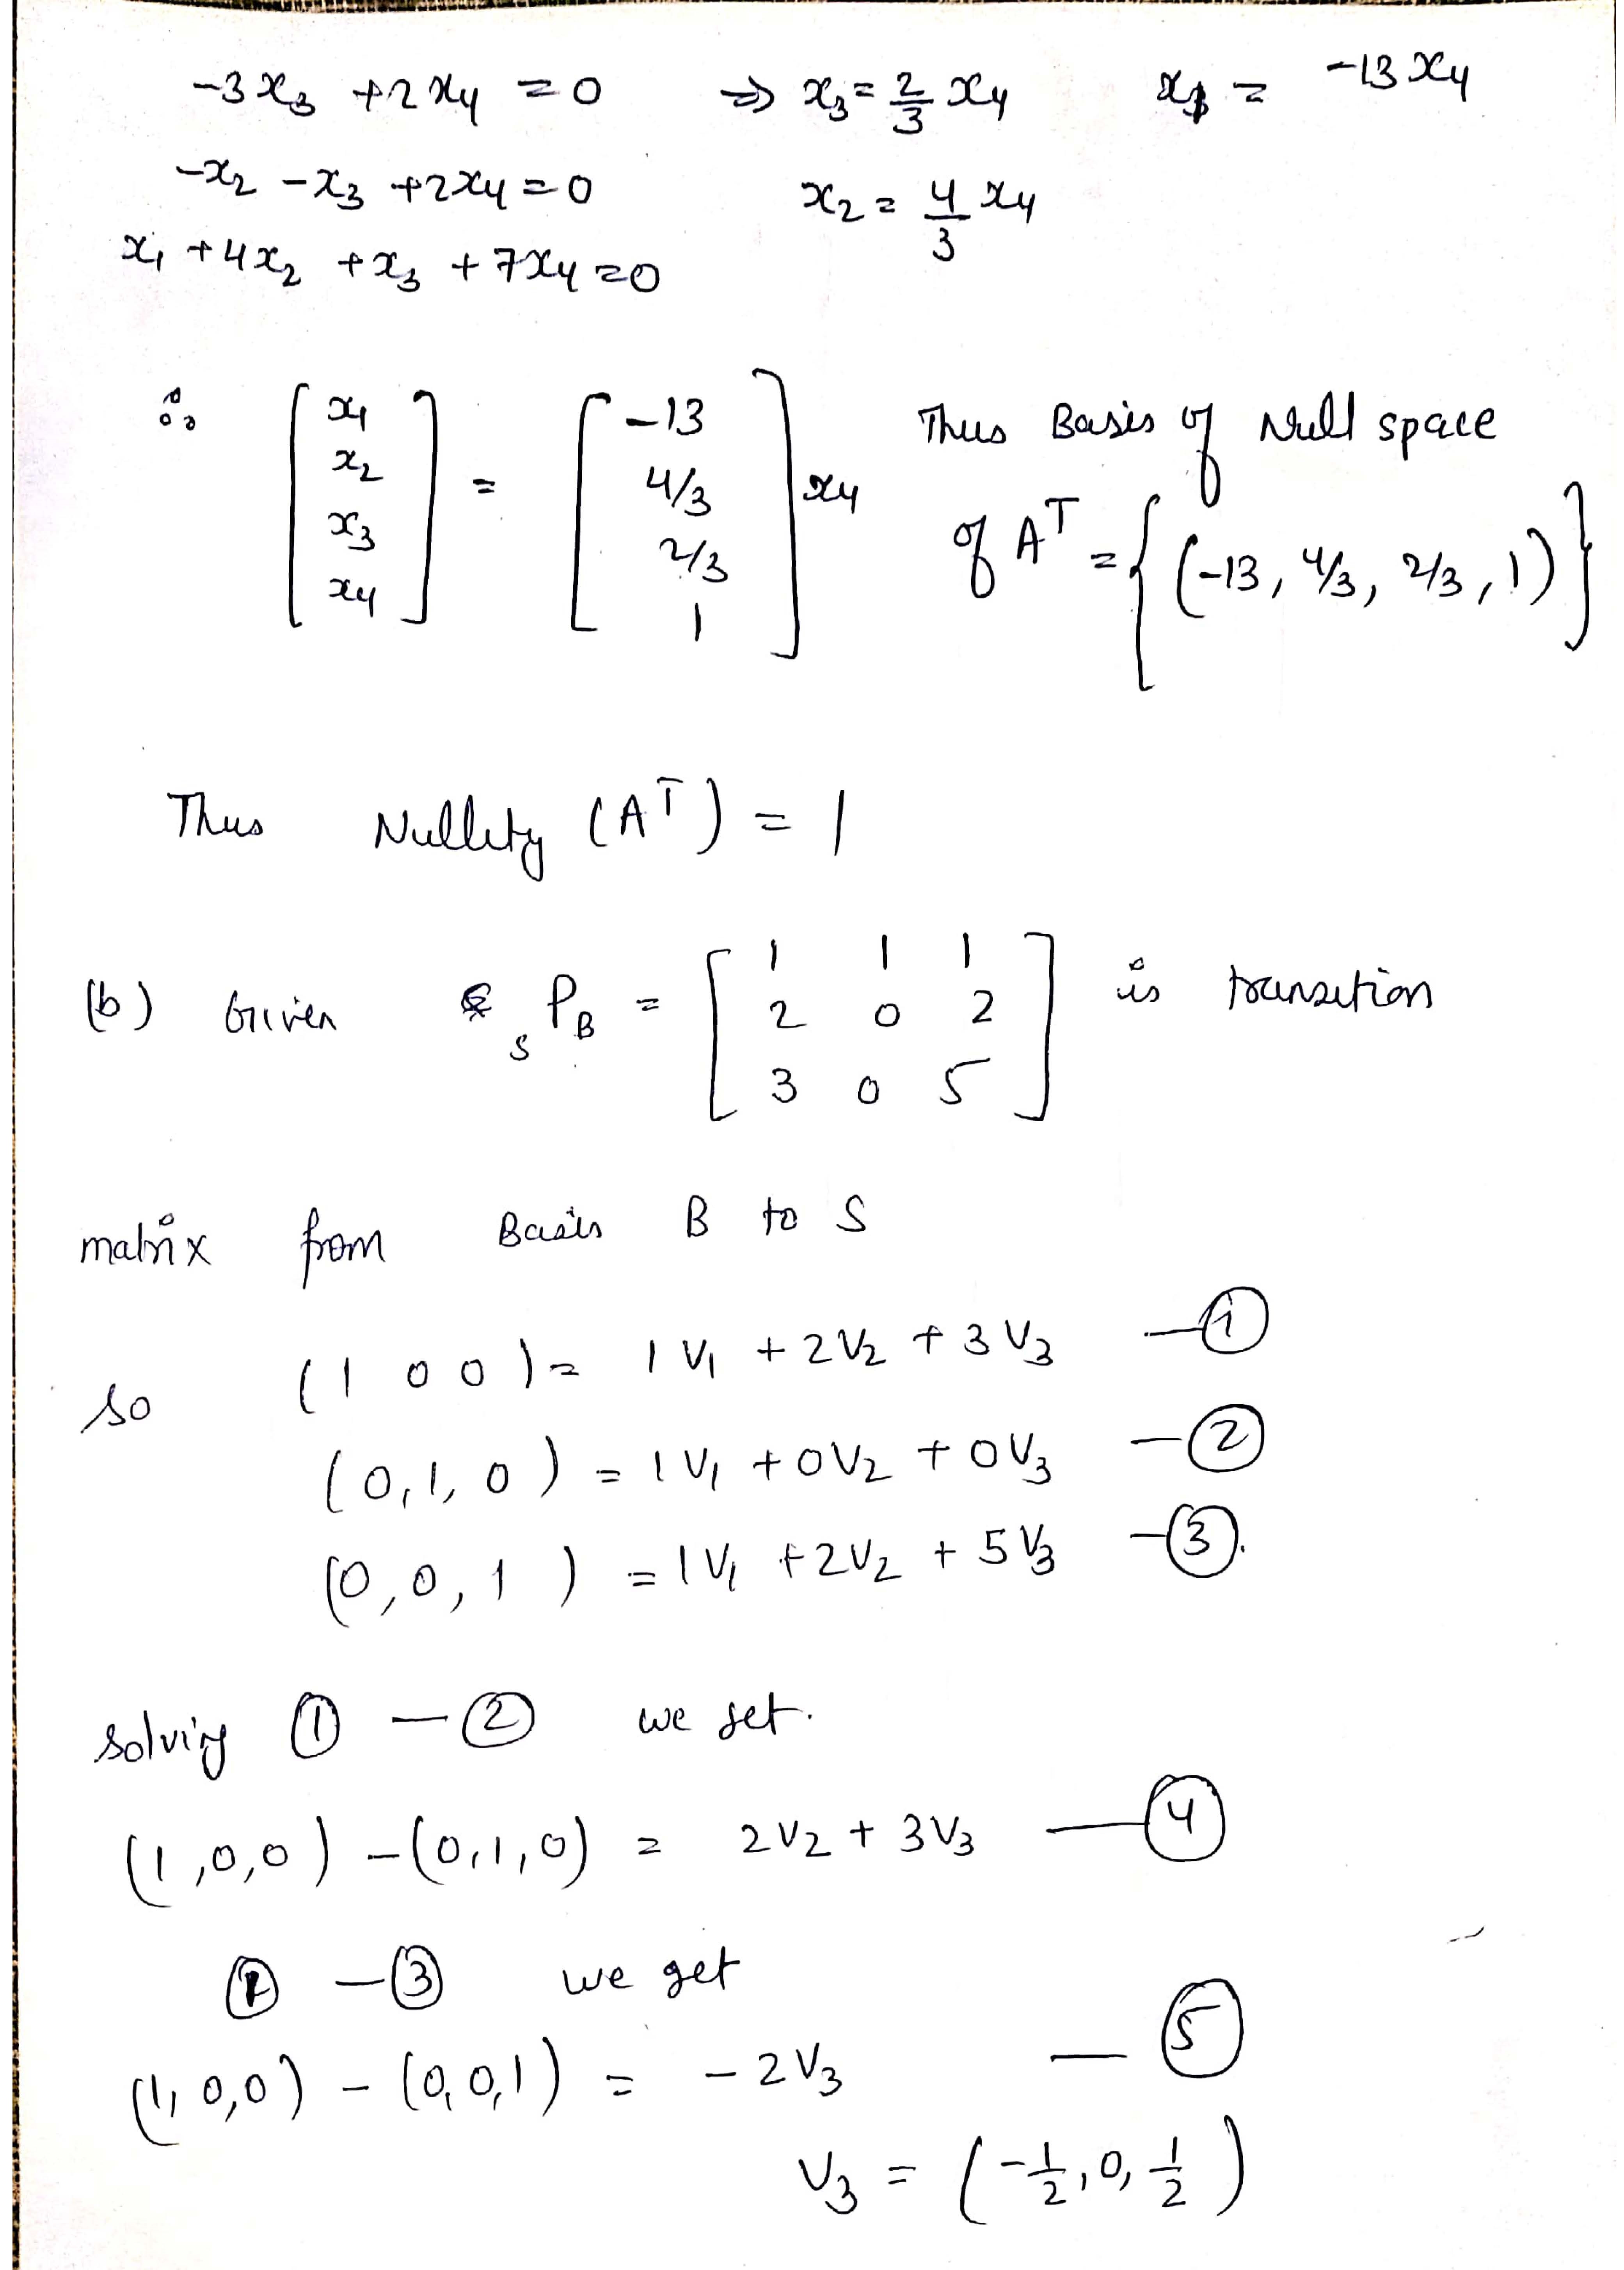 -3x₃ + 2x₄ = 0 ⇒ x₃ = 2/3 x₄ x₁ = -13x₄
-x₂ - x₃ + 2x₄ = 0 x₂ = 4/3 x₄
x₁ + 4x₂ + x₃ + 7x₄ = 0
∴ [x₁ x₂ x₃ x₄] = [-13 4/3 2/3 1] x₄ Thus Basis of Null space
of Aᵀ = {(-13, 4/3, 2/3, 1)}
Thus Nullity (Aᵀ) = 1
(b) Given ₛP_B = [1 1 1
2 0 2
3 0 5] is transition
matrix from Basis B to S
so (1 0 0) = 1V₁ + 2V₂ + 3V₃ — ①
(0,1,0) = 1V₁ + 0V₂ + 0V₃ — ②
(0,0,1) = 1V₁ + 2V₂ + 5V₃ — ③.
solving ① — ② we get.
(1,0,0) - (0,1,0) = 2V₂ + 3V₃ — ④
① — ③ we get
(1,0,0) - (0,0,1) = -2V₃ — ⑤
V₃ = (-1/2, 0, 1/2)